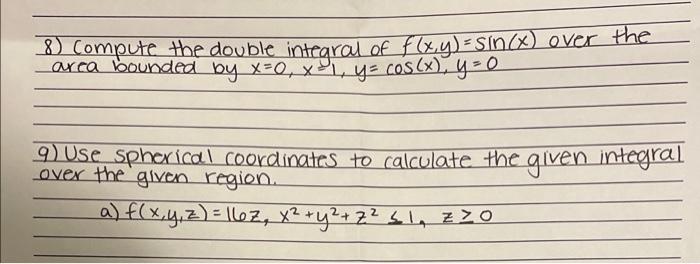 8) Compute the double integral of f(x,y)=sin(x) over the
area bounded by x=0, x=1, y= cos(x), y=0
9) Use spherical coordinates to calculate the given integral
over the given region.
a) f(x,y,z)=16z, x²+y²+z² ≤1, z≥0